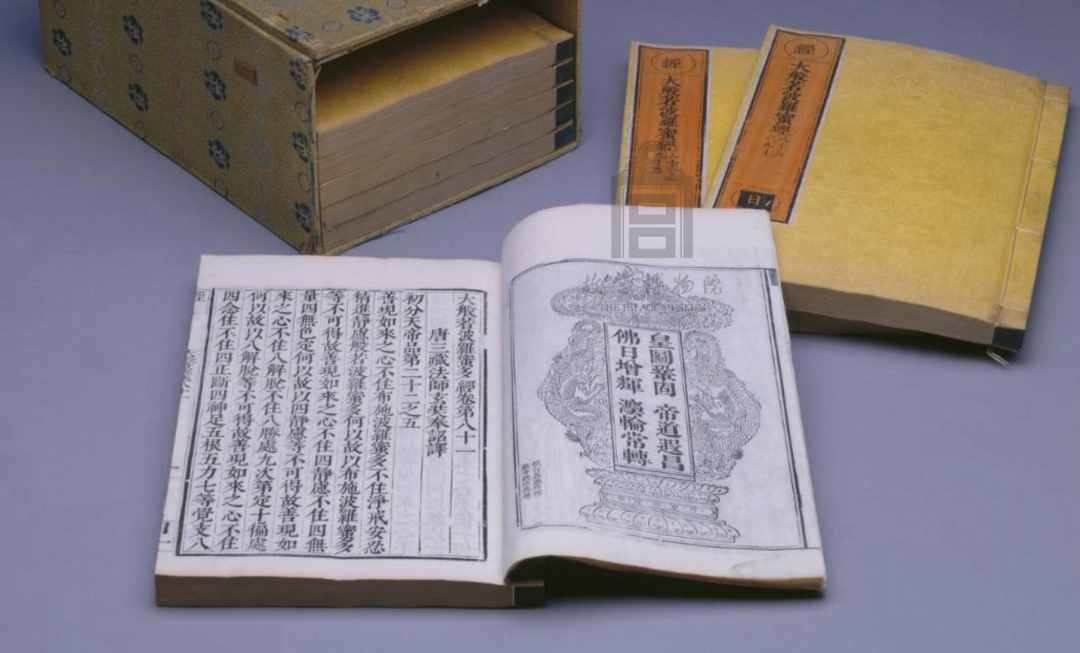 經
大般若波羅蜜經
經
大般若波羅蜜經
日
故宮博物院
THE PALACE MUSEUM
皇圖鞏固 帝道遐昌
佛日增輝 灋輪常轉
大般若波羅蜜多經卷第八十一
唐三藏法師玄奘奉詔譯
初分天帝品第二十二之五
善現如來之心不住布施波羅蜜多不住淨戒安忍
精進靜慮般若波羅蜜多何以故以布施波羅蜜多
等不可得故善現如來之心不住四靜慮不住四無
量四無色定何以故以四靜慮等不可得故善現如
來之心不住八解脫不住八勝處九次第定十徧處
何以故以八解脫等不可得故善現如來之心不住
四念住不住四正斷四神足五根五力七等覺支八